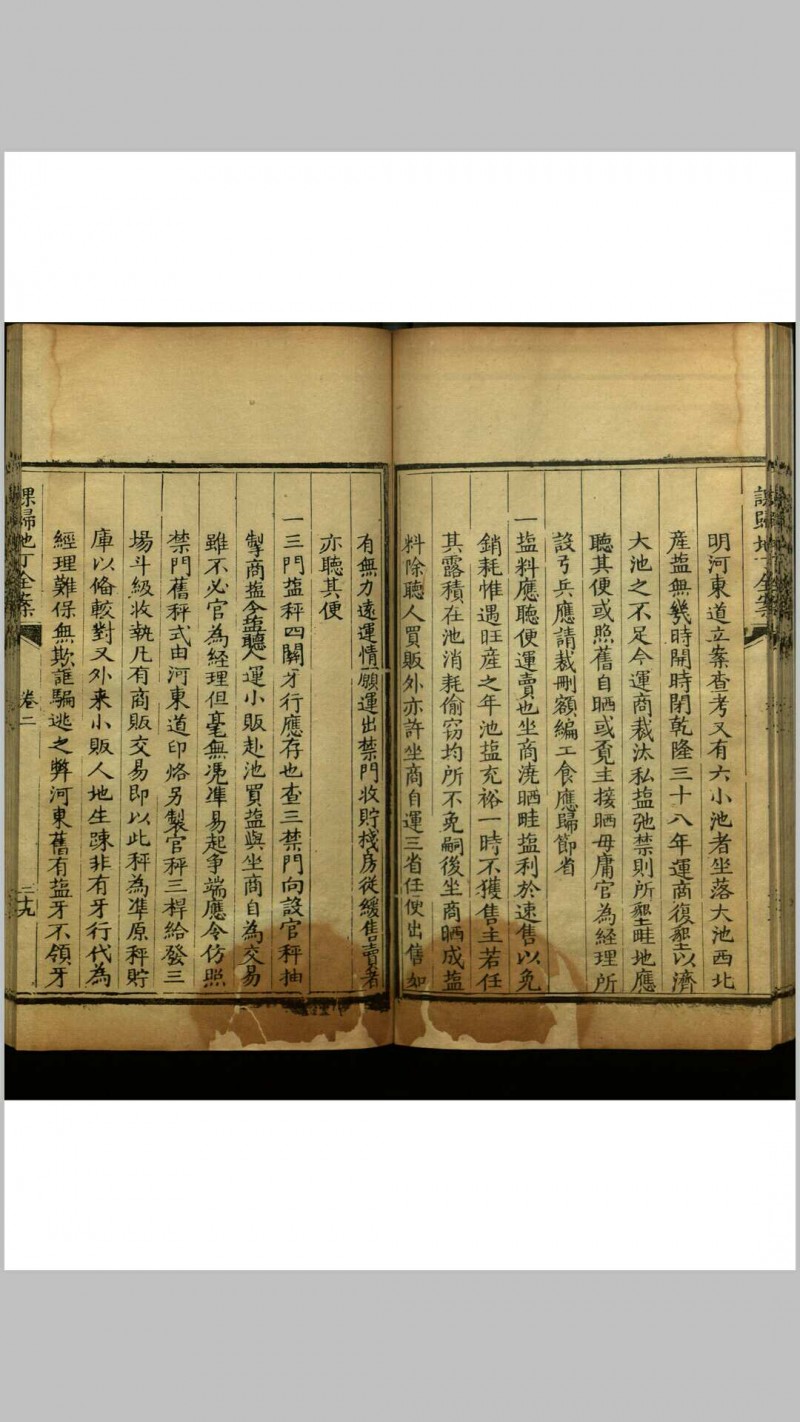 課歸地丁全案
明河東道立案查考又有六小池者坐落大池西北
産塩無幾時開時閉乾隆三十八年運商復墾以濟
大池之不足今運商裁汰私塩弛禁則所墾畦地應
聽其便或照舊自晒或覔主接晒毋庸官為經理所
設弓兵應請裁刪額編工食應歸節省
一塩料應聽便運賣也坐商澆晒畦塩利於速售以免
銷耗惟遇旺産之年池塩充裕一時不獲售主若任
其露積在池消耗偷窃均所不免嗣後坐商晒成塩
料除聽人買販外亦許坐商自運三省任便出售如
有無力遠運情願運出禁門收貯棧房從緩售賣者
亦聽其便
一三門塩秤四關牙行應存也查三禁門向設官秤抽
掣商塩今塩聽人運小販赴池買塩與坐商自為交易
雖不必官為經理但毫無凴凖易起爭端應令仿照
禁門舊秤式由河東道印烙另製官秤三桿給發三
場斗級收執凡有商販交易即以此秤為凖原秤貯
庫以俻較對又外来小販人地生踈非有牙行代為
經理難保無欺誆騙逃之弊河東舊有塩牙不領牙
課歸地丁全案
卷二
三九